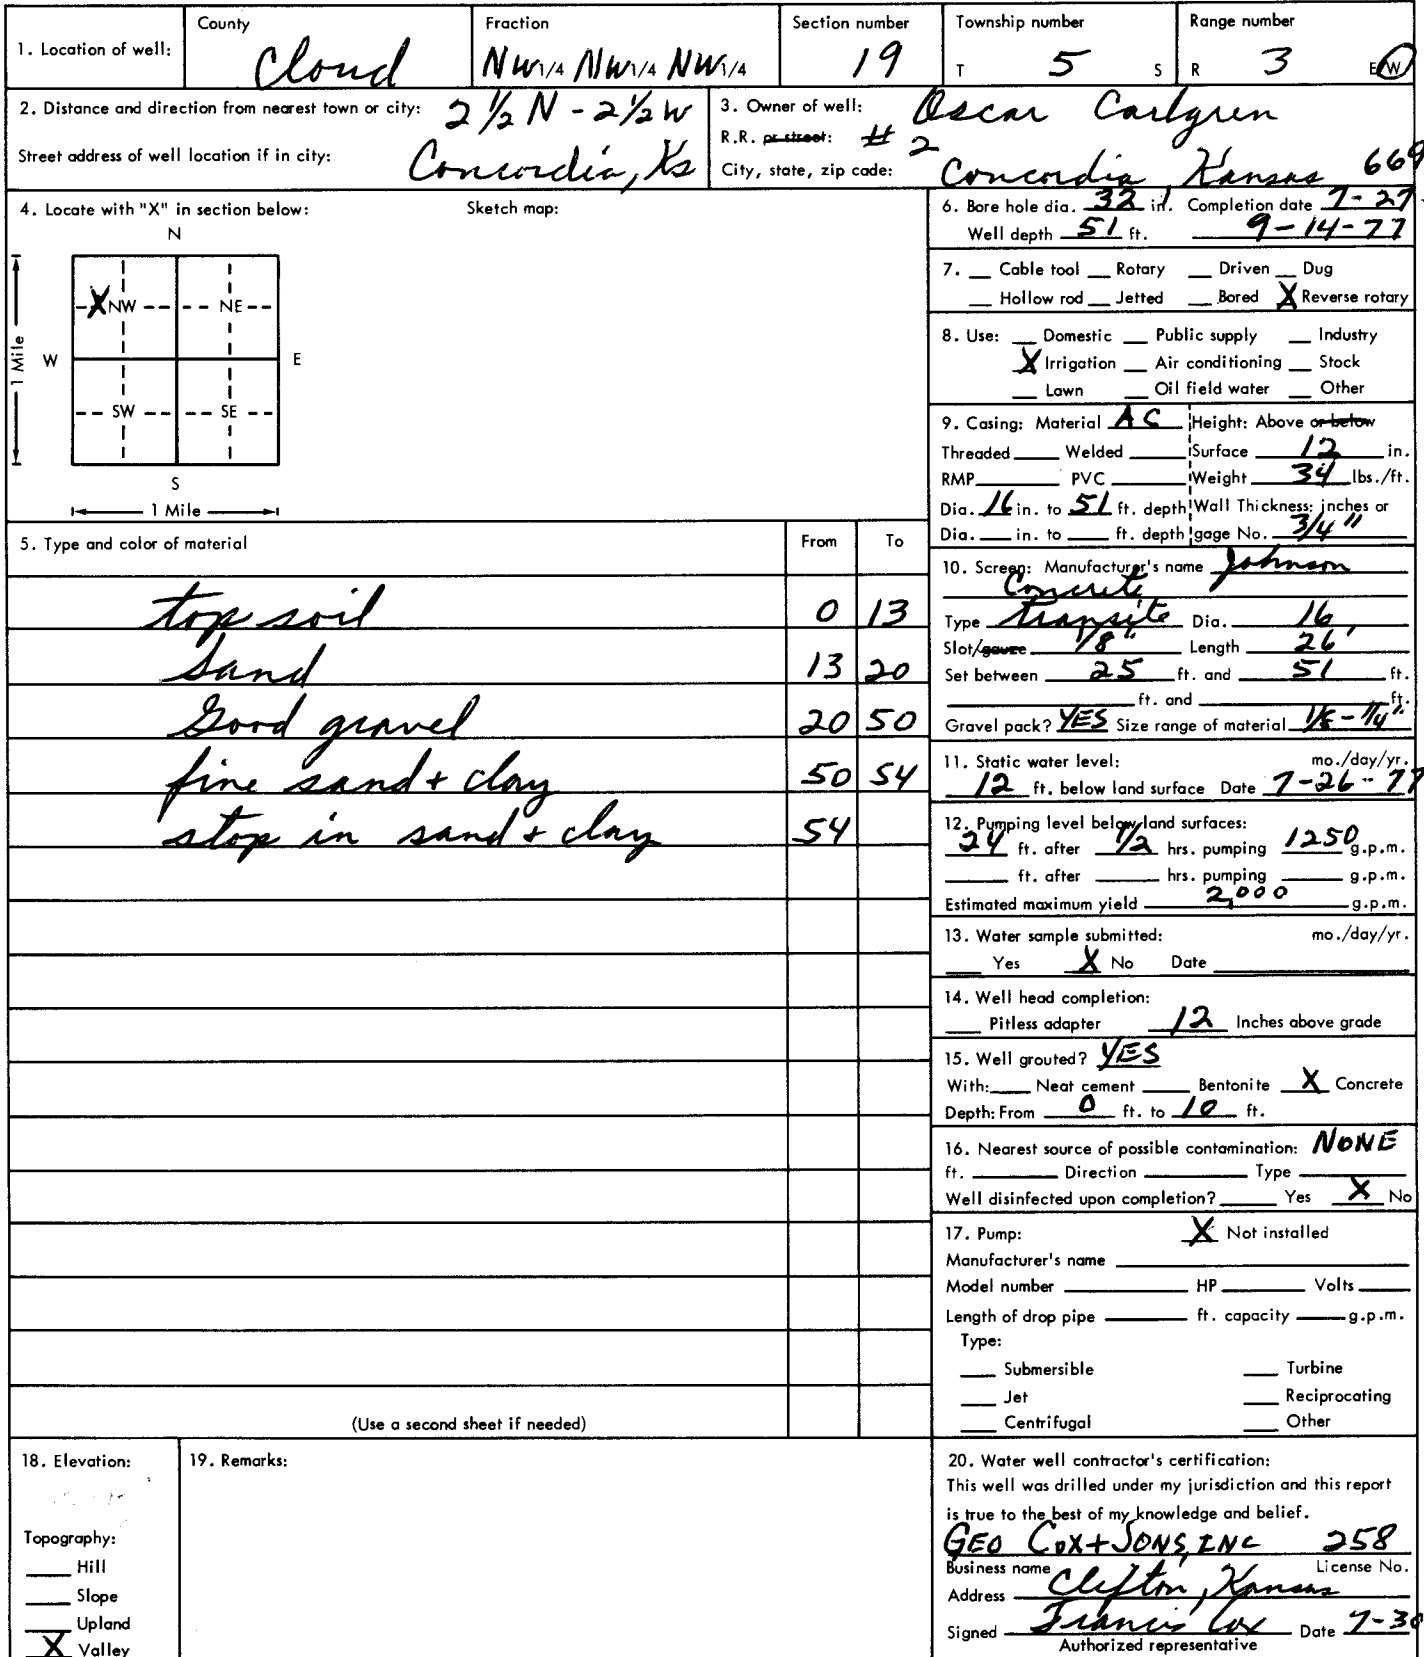 1. Location of well: County Cloud Fraction NW 1/4 NW 1/4 NW 1/4 Section number 19 Township number T 5 S Range number R 3 E/W
2. Distance and direction from nearest town or city: 2 1/2 N - 2 1/2 W
Street address of well location if in city: Concordia, Ks
3. Owner of well: Oscar Carlgren
R.R. or street: # 2
City, state, zip code: Concordia, Kansas 669
4. Locate with "X" in section below: Sketch map:
N
X NW NE
W E
1 Mile
SW SE
S
1 Mile
5. Type and color of material From To
top soil 0 13
Sand 13 20
Good gravel 20 50
fine sand + clay 50 54
stop in sand + clay 54
(Use a second sheet if needed)
6. Bore hole dia. 32 in. Completion date 7-27-
Well depth 51 ft. 9-14-77
7. Cable tool Rotary Driven Dug
Hollow rod Jetted Bored X Reverse rotary
8. Use: Domestic Public supply Industry
X Irrigation Air conditioning Stock
Lawn Oil field water Other
9. Casing: Material AC Height: Above or below
Threaded Welded Surface 12 in.
RMP PVC Weight 34 lbs./ft.
Dia. 16 in. to 51 ft. depth Wall Thickness: inches or
Dia. in. to ft. depth gage No. 3/4"
10. Screen: Manufacturer's name Johnson
Concrete
Type transite Dia. 16
Slot/gauze 1/8" Length 26'
Set between 25 ft. and 51 ft.
ft. and ft.
Gravel pack? YES Size range of material 1/8 - 1/4"
11. Static water level: mo./day/yr.
12 ft. below land surface Date 7-26-77
12. Pumping level below land surfaces:
24 ft. after 1/2 hrs. pumping 1250 g.p.m.
ft. after hrs. pumping g.p.m.
Estimated maximum yield 2,000 g.p.m.
13. Water sample submitted: mo./day/yr.
Yes X No Date
14. Well head completion:
Pitless adapter 12 Inches above grade
15. Well grouted? YES
With: Neat cement Bentonite X Concrete
Depth: From 0 ft. to 10 ft.
16. Nearest source of possible contamination: NONE
ft. Direction Type
Well disinfected upon completion? Yes X No
17. Pump: X Not installed
Manufacturer's name
Model number HP Volts
Length of drop pipe ft. capacity g.p.m.
Type:
Submersible Turbine
Jet Reciprocating
Centrifugal Other
18. Elevation:
Topography:
Hill
Slope
Upland
X Valley
19. Remarks:
20. Water well contractor's certification:
This well was drilled under my jurisdiction and this report
is true to the best of my knowledge and belief.
GEO COX + SONS, INC 258
Business name License No.
Address Clifton, Kansas
Signed Francis Cox Date 7-30
Authorized representative